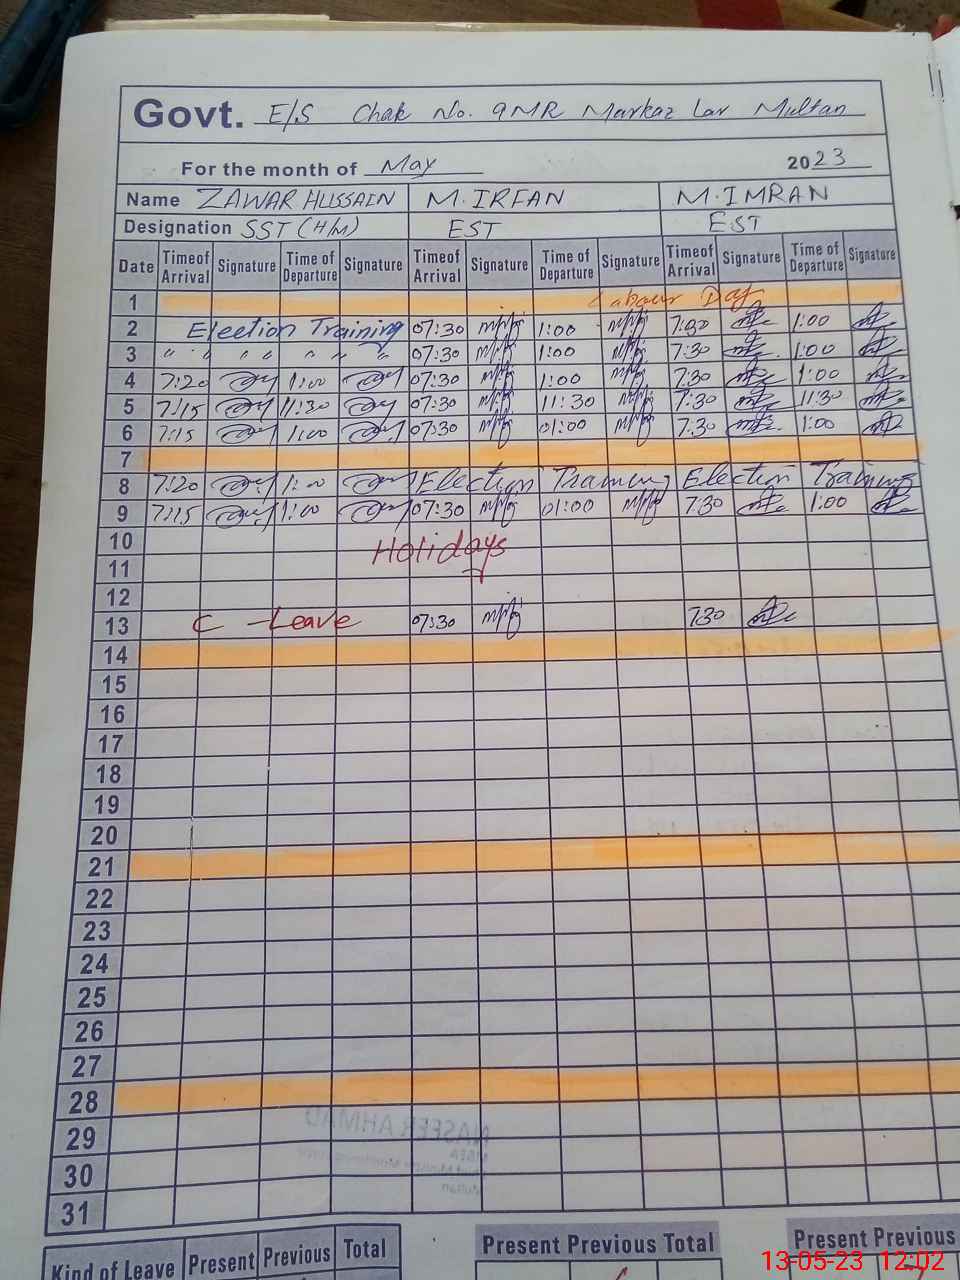 Govt. E/S Chak No. 9MR Markaz Lar Multan
For the month of May 2023
Name ZAWAR HUSSAIN M. IRFAN M. IMRAN
Designation SST (H/M) EST EST
Date Timeof Arrival Signature Time of Departure Signature Timeof Arrival Signature Time of Departure Signature Timeof Arrival Signature Time of Departure Signature
1 Labour Day
2 Election Training 07:30 1:00 7:30 1:00
3 " " " " " " " 07:30 1:00 7:30 1:00
4 7:20 1:00 07:30 1:00 7:30 1:00
5 7:15 11:30 07:30 11:30 7:30 11:30
6 7:15 1:00 07:30 01:00 7:30 1:00
7
8 7:20 1:00 Election Training Election Training
9 7:15 1:00 07:30 01:00 7:30 1:00
10 Holidays
11
12
13 C - Leave 07:30 730
14
15
16
17
18
19
20
21
22
23
24
25
26
27
28
29
30
31
Kind of Leave Present Previous Total Present Previous Total Present Previous
13-05-23 12:02